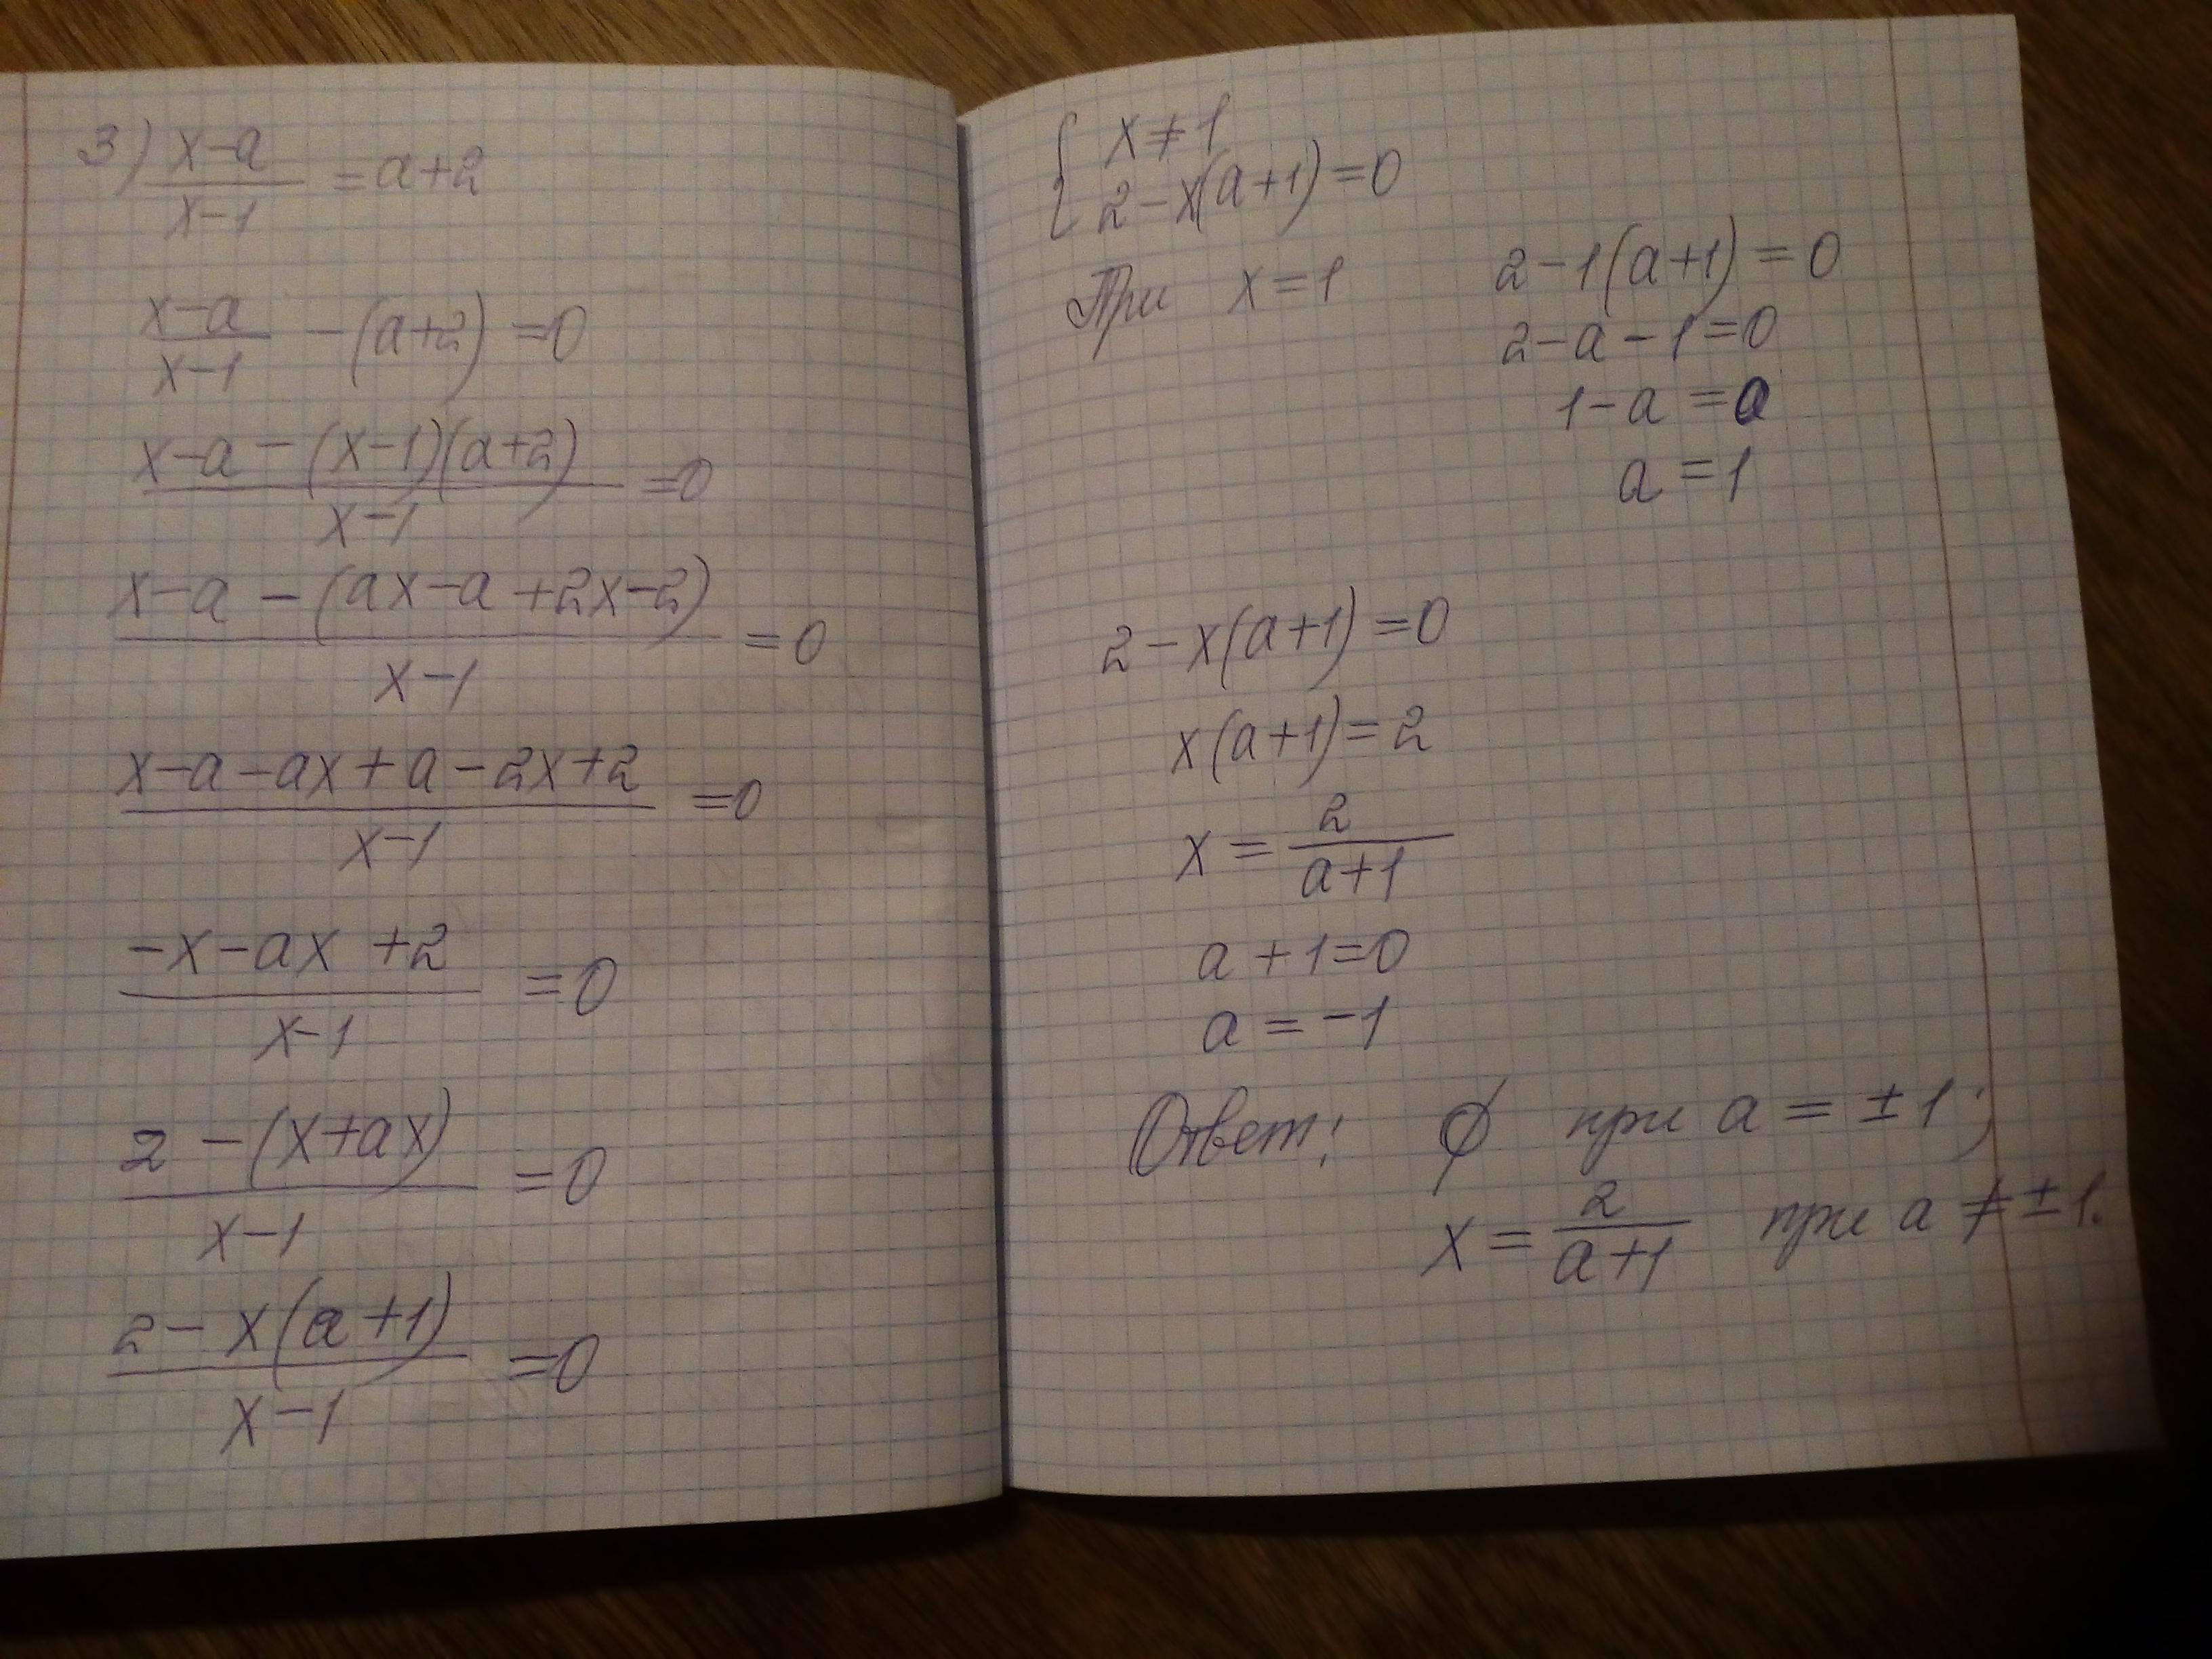 3) (x-a)/(x-1) = a+2
(x-a)/(x-1) - (a+2) = 0
(x-a-(x-1)(a+2))/(x-1) = 0
(x-a-(ax-a+2x-2))/(x-1) = 0
(x-a-ax+a-2x+2)/(x-1) = 0
(-x-ax+2)/(x-1) = 0
(2-(x+ax))/(x-1) = 0
(2-x(a+1))/(x-1) = 0
{ x≠1
2-x(a+1)=0
При x=1 2-1(a+1)=0
2-a-1=0
1-a=0
a=1
2-x(a+1)=0
x(a+1)=2
x = 2/(a+1)
a+1=0
a=-1
Ответ: ∅ при a = ±1;
x = 2/(a+1) при a ≠ ±1.